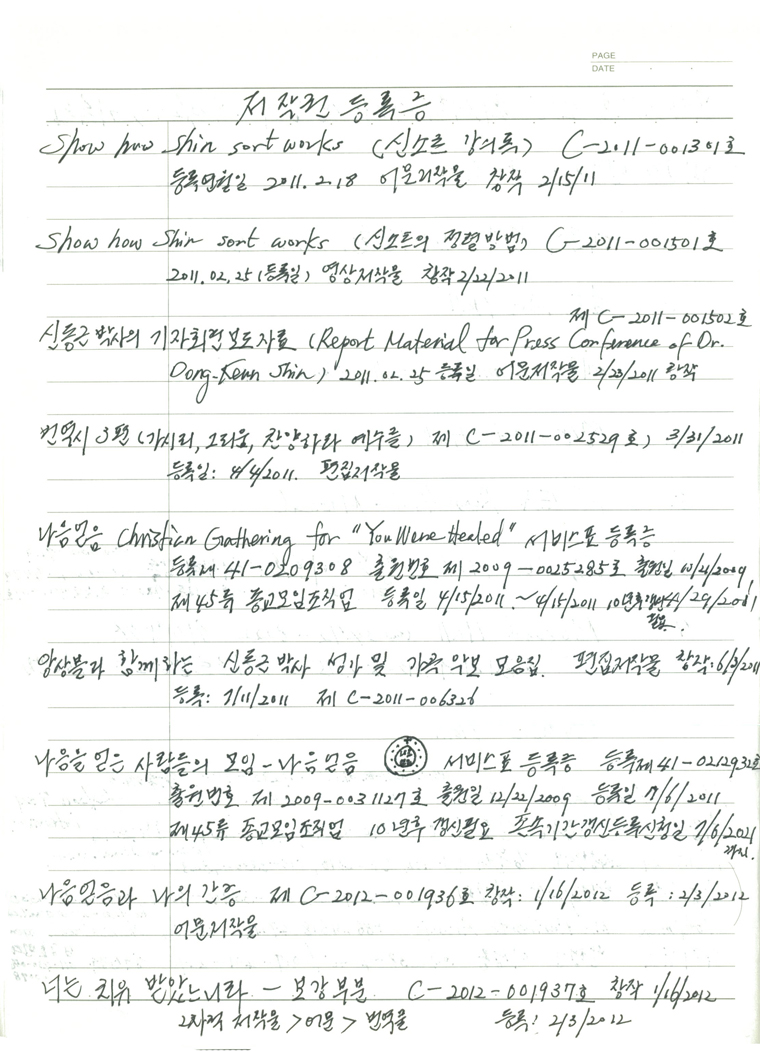 PAGE
DATE
저작권 등록증
Show how Shin sort works (신소트 강의록) C-2011-001301호
등록연월일 2011.2.18 어문저작물 창작 2/15/11
Show how Shin sort works (신소트의 정렬방법) C-2011-001501호
2011.02.25 (등록일) 영상저작물 창작 2/22/2011
제 C-2011-001502호
신동근 박사의 기자회견 보도자료 (Report Material for Press Conference of Dr.
Dong-Keun Shin) 2011.02.25 등록일 어문저작물 2/23/2011 창작
번역시 3편 (가시리, 그리움, 찬양하라 예수를) 제 C-2011-002529호) 3/31/2011
등록일: 4/4/2011. 편집저작물
나음얻음 Christian Gathering for "You Were Healed" 서비스표 등록증
등록제 41-0209308 출원번호 제 2009-0025285호 출원일 10/21/2009
제45류 종교모임조직업 등록일 4/15/2011. ~4/15/2011 10년후갱신
필요.
앙상블과 함께하는 신동근 박사 성가 및 가곡 악보 모음집. 편집저작물 창작: 6/3/2011
등록: 7/11/2011 제 C-2011-006326
나음을 얻은 사람들의 모임 - 나음얻음 서비스표 등록증 등록제 41-0212932호
출원번호 제 2009-0031127호 출원일 12/22/2009 등록일 7/6/2011
제45류 종교모임조직업 10년후 갱신필요 존속기간갱신등록신청일 7/6/2021
까지.
나음얻음과 나의 간증 제 C-2012-001936호 창작: 1/16/2012 등록: 2/3/2012
어문저작물
너는 치유 받았느니라 - 보강부분 C-2012-001937호 창작 1/16/2012
2차적 저작물 > 어문 > 번역물 등록: 2/3/2012